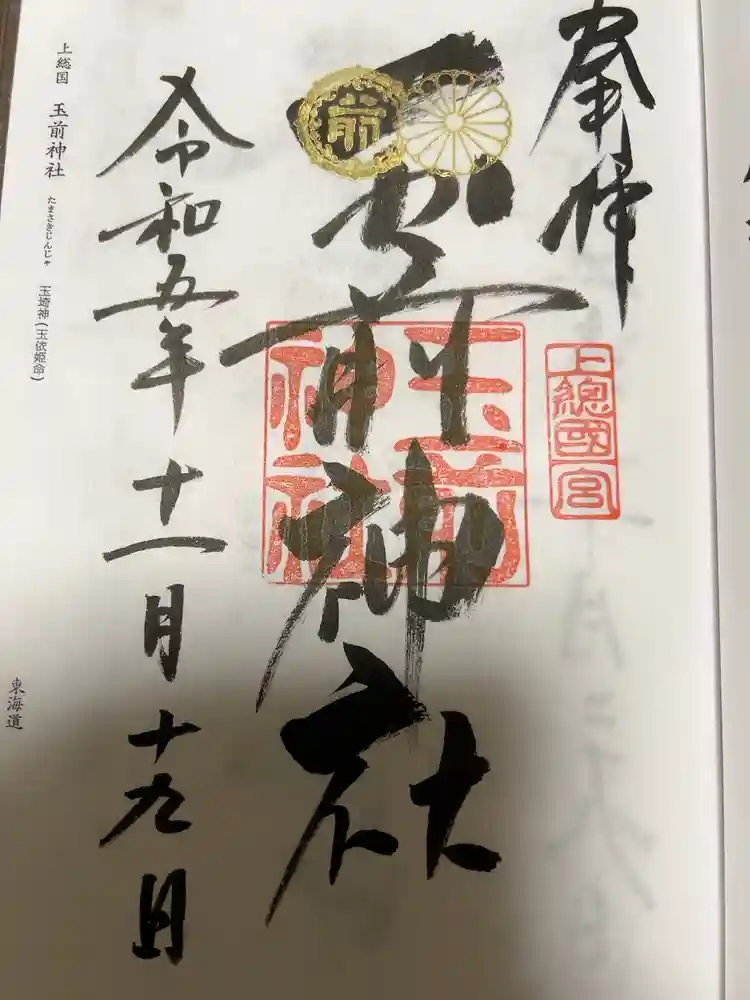 奉拝
上總國一宮
玉前神社
玉前神社
前
令和五年十一月十九日
上総国 玉前神社 たまさきじんじゃ 玉埼神(玉依姫命)
東海道